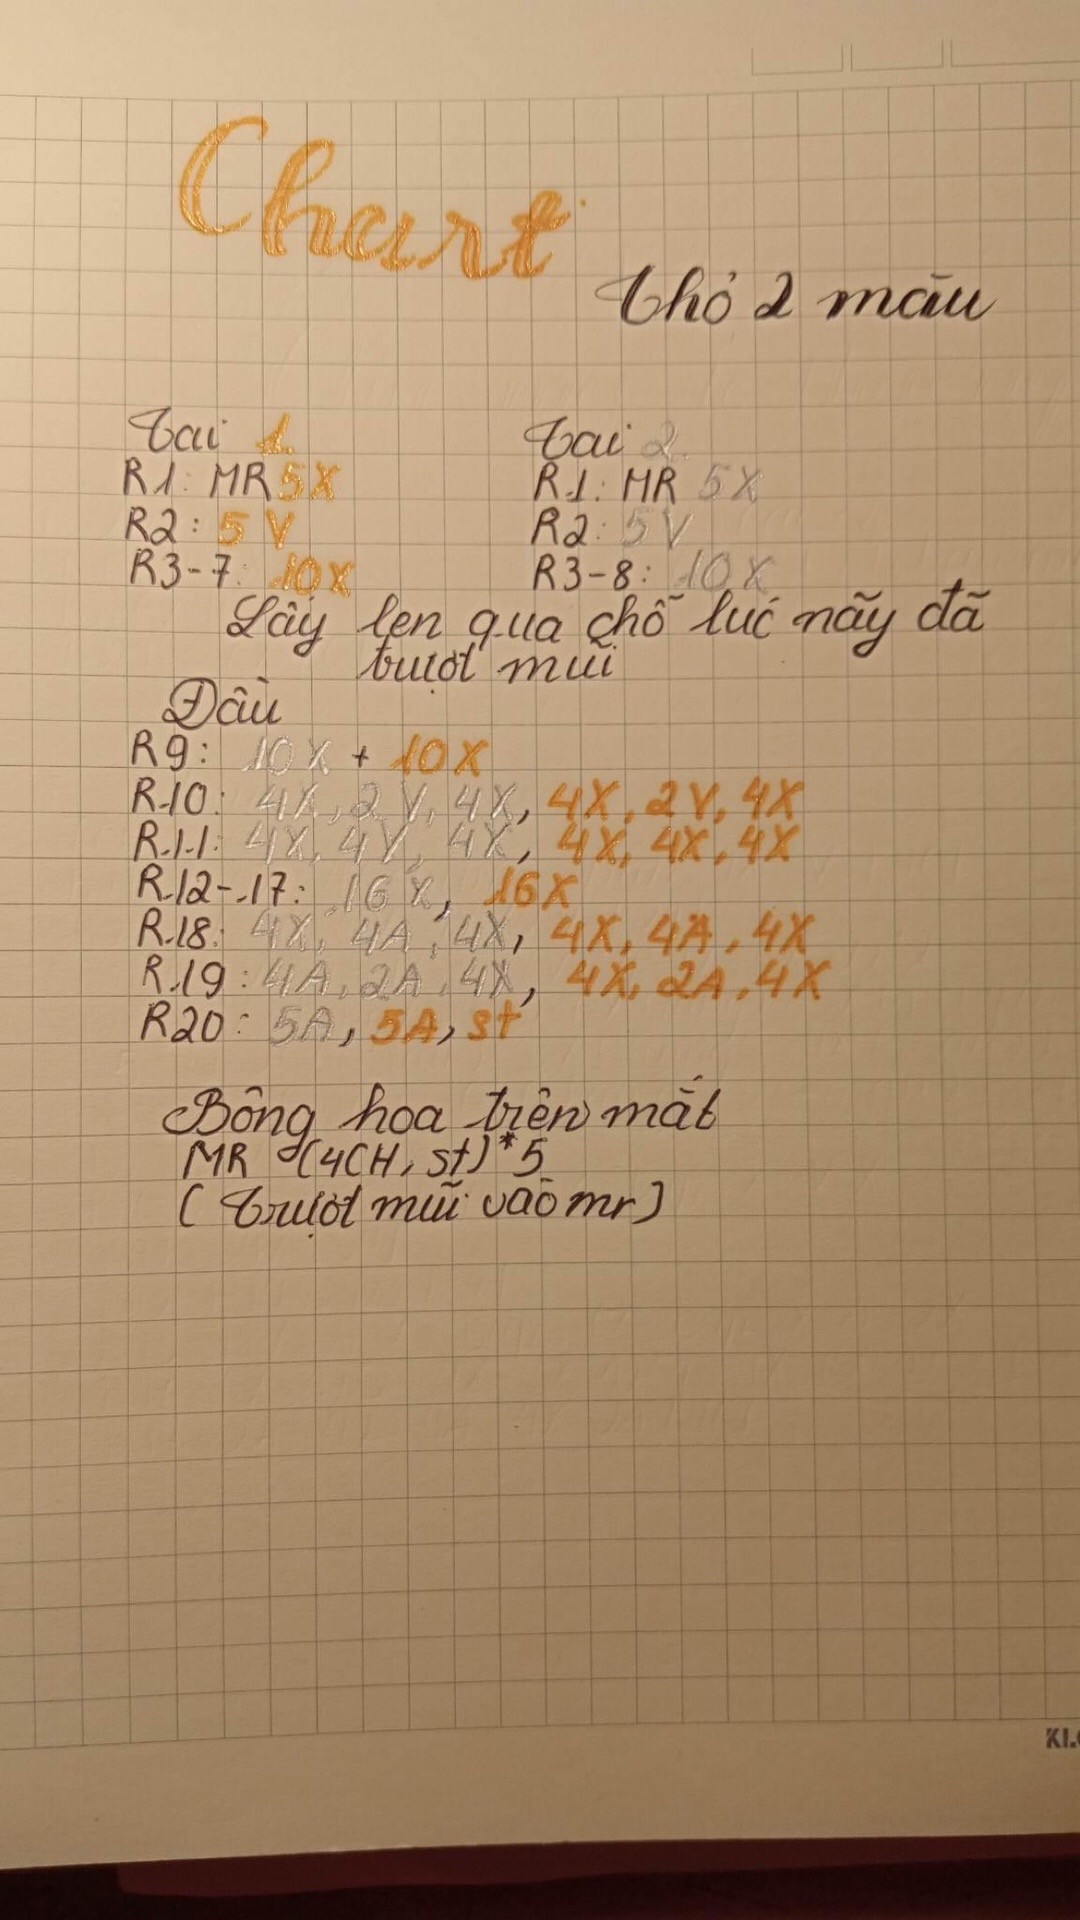 Chart
Thỏ 2 màu
Tai 1.
R1: MR 5X
R2: 5 V
R3-7: 10X
Tai 2.
R1: MR 5X
R2: 5V
R3-8: 10X
Lấy len qua chỗ lúc nãy đã
trượt mũi
Đầu
R9: 10X + 10X
R10: 4X, 2V, 4X, 4X, 2V, 4X
R11: 4X, 4V, 4X, 4X, 4X, 4X
R12-17: 16X, 16X
R18: 4X, 4A, 4X, 4X, 4A, 4X
R19: 4A, 2A, 4X, 4X, 2A, 4X
R20: 5A, 5A, st
Bông hoa trên mắt
MR (4CH, st)*5
(Trượt mũi vào mr)